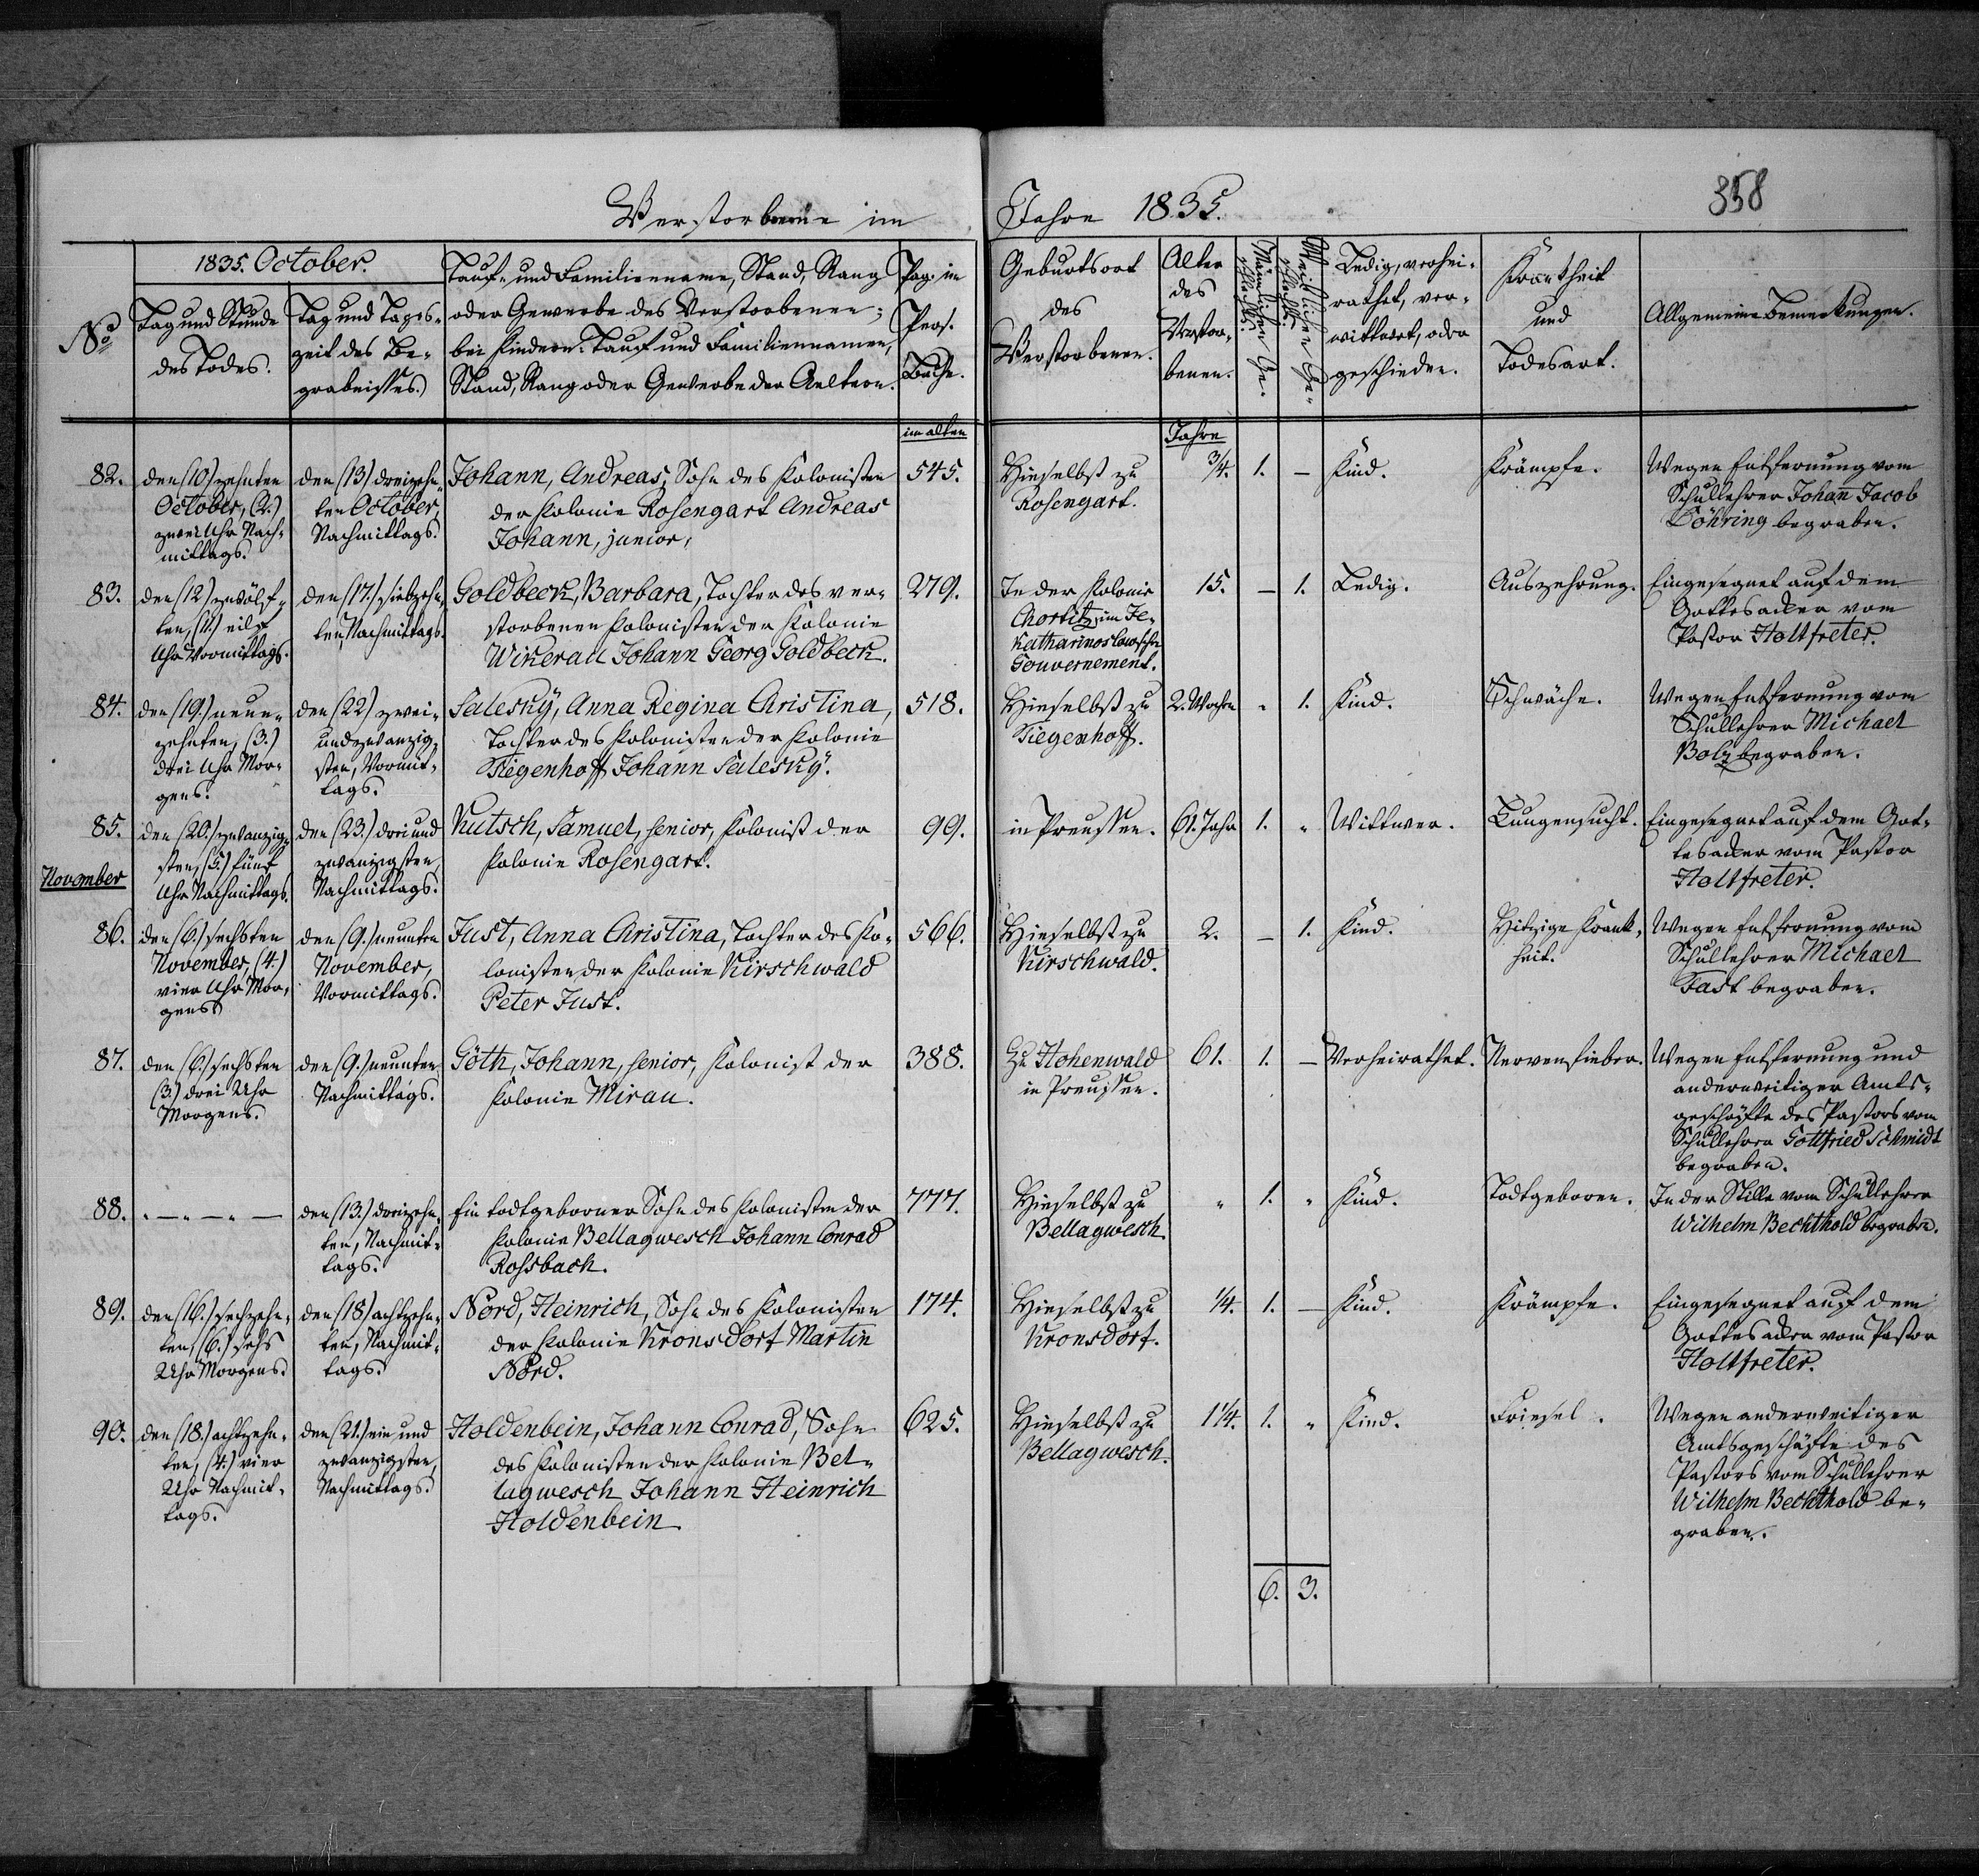 Verstorbene im Jahre 1835.
358
1835. October.
No
Tag und Stunde
des Todes.
Tag und Tages-
zeit des Be-
gräbnisses.
Tauf- und Familienname, Stand, Rang
oder Gewerbe des Verstorbenen;
bei Kindern: Tauf und Familiennamen,
Stand, Rang oder Gewerbe der Aeltern.
Pag. im
Pers.
Buche.
Geburtsort
des
Verstorbenen.
Alter
des
Verstor-
benen.
Männlichen Ge-
schlechts.
Weiblichen Ge-
schlechts.
Ledig, verhei-
rathet, ver-
wittwet, oder
geschieden.
Krankheit
und
Todesart.
Allgemeine Bemerkungen.
im alten
Jahre
82.
den (10) zehnten
October, (2.)
zwei Uhr Nach-
mittags.
den (13) dreizehn-
ten October,
Nachmittags.
Johann, Andreas, Sohn des Kolonisten
der Kolonie Rosengart Andreas
Johann, junior,
545.
Hieselbst zu
Rosengart.
3/4.
1.
–
Kind.
Krämpfe.
Wegen Entfernung vom
Schullehrer Johan̄ Jacob
Döhring begraben.
83.
den (12) zwölf-
ten, (11.) eilf
Uhr Vormittags.
den (17.) siebzehn-
ten, Nachmittags.
Goldbeck, Barbara, Tochter des ver-
storbenen Kolonisten der Kolonie
Wikerau Johann Georg Goldbeck.
279.
In der Kolonie
Chortitz, im Je-
katharinoslawschen
Gouvernement.
15.
–
1.
Ledig.
Auszehrung.
Eingesegnet auf dem
Gottesacker vom
Pastor Holtfreter.
84.
den (19.) neun-
zehnten, (3.)
drei Uhr Mor-
gens.
den (22) zwei-
undzwanzig-
sten, Vormit-
tags.
Salesky, Anna Regina Christina,
Tochter des Kolonisten der Kolonie
Tiegenhoff Johann Salesky.
518.
Hieselbst zu
Tiegenhoff.
2. Wochen
"
1.
Kind.
Schwäche.
Wegen Entfernung vom
Schullehrer Michael
Bolz begraben.
85.
den (20.) zwanzig-
sten, (5.) fünf
Uhr Nachmittags.
den (23.) drei und
zwanzigsten,
Nachmittags.
Kutsch, Samuel, senior, Kolonist der
Kolonie Rosengart.
99.
in Preussen.
61. Jahr
1.
"
Wittwer.
Lungensucht.
Eingesegnet auf dem Got-
tesacker vom Pastor
Holtfreter.
November
86.
den (6.) sechsten
November, (4.)
vier Uhr Mor-
gens.
den (9.) neunten
November,
Vormittags.
Just, Anna Christina, Tochter des Ko-
lonisten der Kolonie Kirschwald
Peter Just.
566.
Hieselbst zu
Kirschwald.
2.
–
1.
Kind.
Hitzige Krank-
heit.
Wegen Entfernung vom
Schullehrer Michael
Fast begraben.
87.
den (6.) sechsten
(3.) drei Uhr
Morgens.
den (9.) neunten
Nachmittags.
Göth, Johann, senior, Kolonist der
Kolonie Mirau.
388.
Zu Hohenwald
in Preussen.
61.
1.
–
Verheirathet.
Nervenfieber.
Wegen Entfernung und
anderweitiger Amts-
geschäfte des Pastors vom
Schullehrer Gottfried Schmidt
begraben.
88.
den (13.) dreizehn-
ten, Nachmit-
tags.
Ein todtgeborner Sohn des Kolonisten der
Kolonie Bellagwesch Johann Conrad
Rossbach.
777.
Hieselbst zu
Bellagwesch.
"
1.
"
Kind.
Todtgeboren.
In der Stille vom Schullehrer
Wilhelm Bechthold begraben.
89.
den (16.) sechzehn-
ten, (6.) sechs
Uhr Morgens.
den (18) achtzehn-
ten, Nachmit-
tags.
Nord, Heinrich, Sohn des Kolonisten
der Kolonie Kronsdorf Martin
Nord.
174.
Hieselbst zu
Kronsdorf.
1/4.
1.
–
Kind.
Krämpfe.
Eingesegnet auf dem
Gottesacker vom Pastor
Holtfreter.
90.
den (18.) achtzehn-
ten, (4.) vier
Uhr Nachmit-
tags.
den (21.) ein und
zwanzigsten,
Nachmittags.
Holdenbein, Johann Conrad, Sohn
des Kolonisten der Kolonie Bel-
lagwesch Johann Heinrich
Holdenbein
625.
Hieselbst zu
Bellagwesch.
1 1/4.
1.
"
Kind.
Friesel.
Wegen anderweitiger
Amtsgeschäfte des
Pastors vom Schullehrer
Wilhelm Bechthold be-
graben.
6. 3.